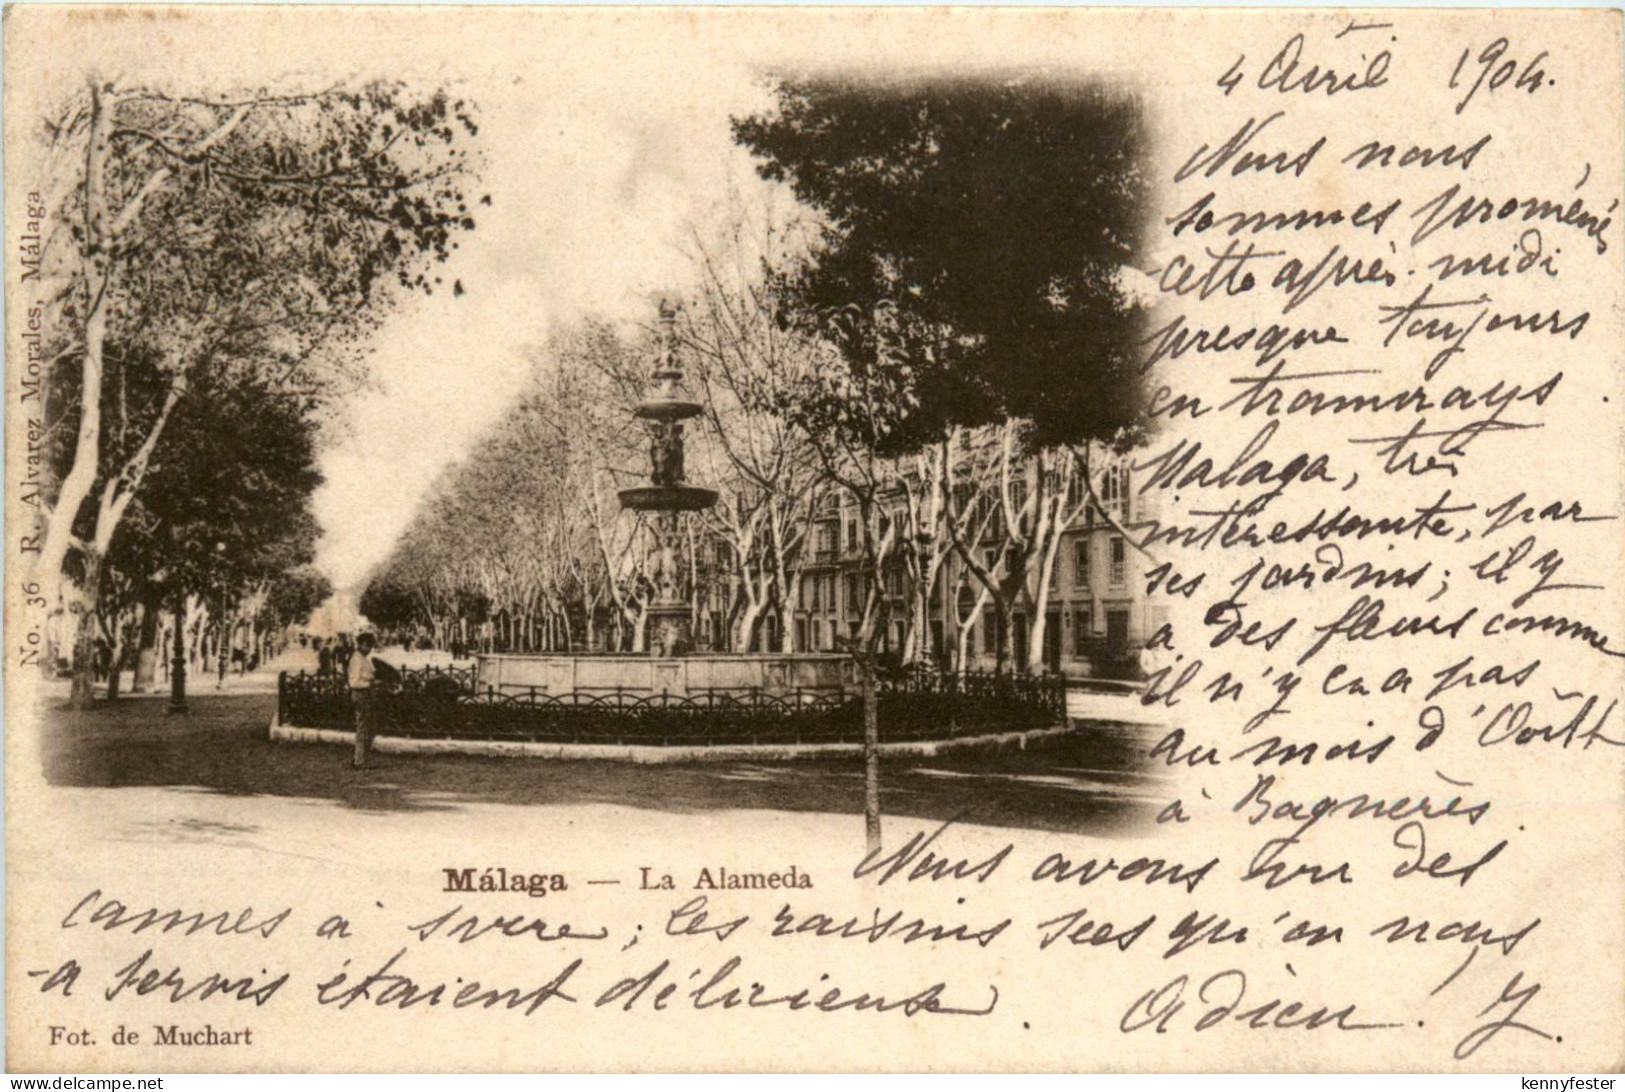 4 Avril 1904.
Nous nous
sommes promenés
cette après-midi
presque toujours
en tramways.
Malaga, très
intéressante, par
ses jardins; il y
a des fleurs comme
il n'y en a pas
au mois d'Août
à Bagnerès.
Nous avons vu des
cannes à sucre; les raisins secs qu'on nous
a servis étaient délicieux. Adieu. J.
Málaga — La Alameda
Fot. de Muchart
No. 36 R. Alvarez Morales, Málaga
www.delcampe.net
kennyfester